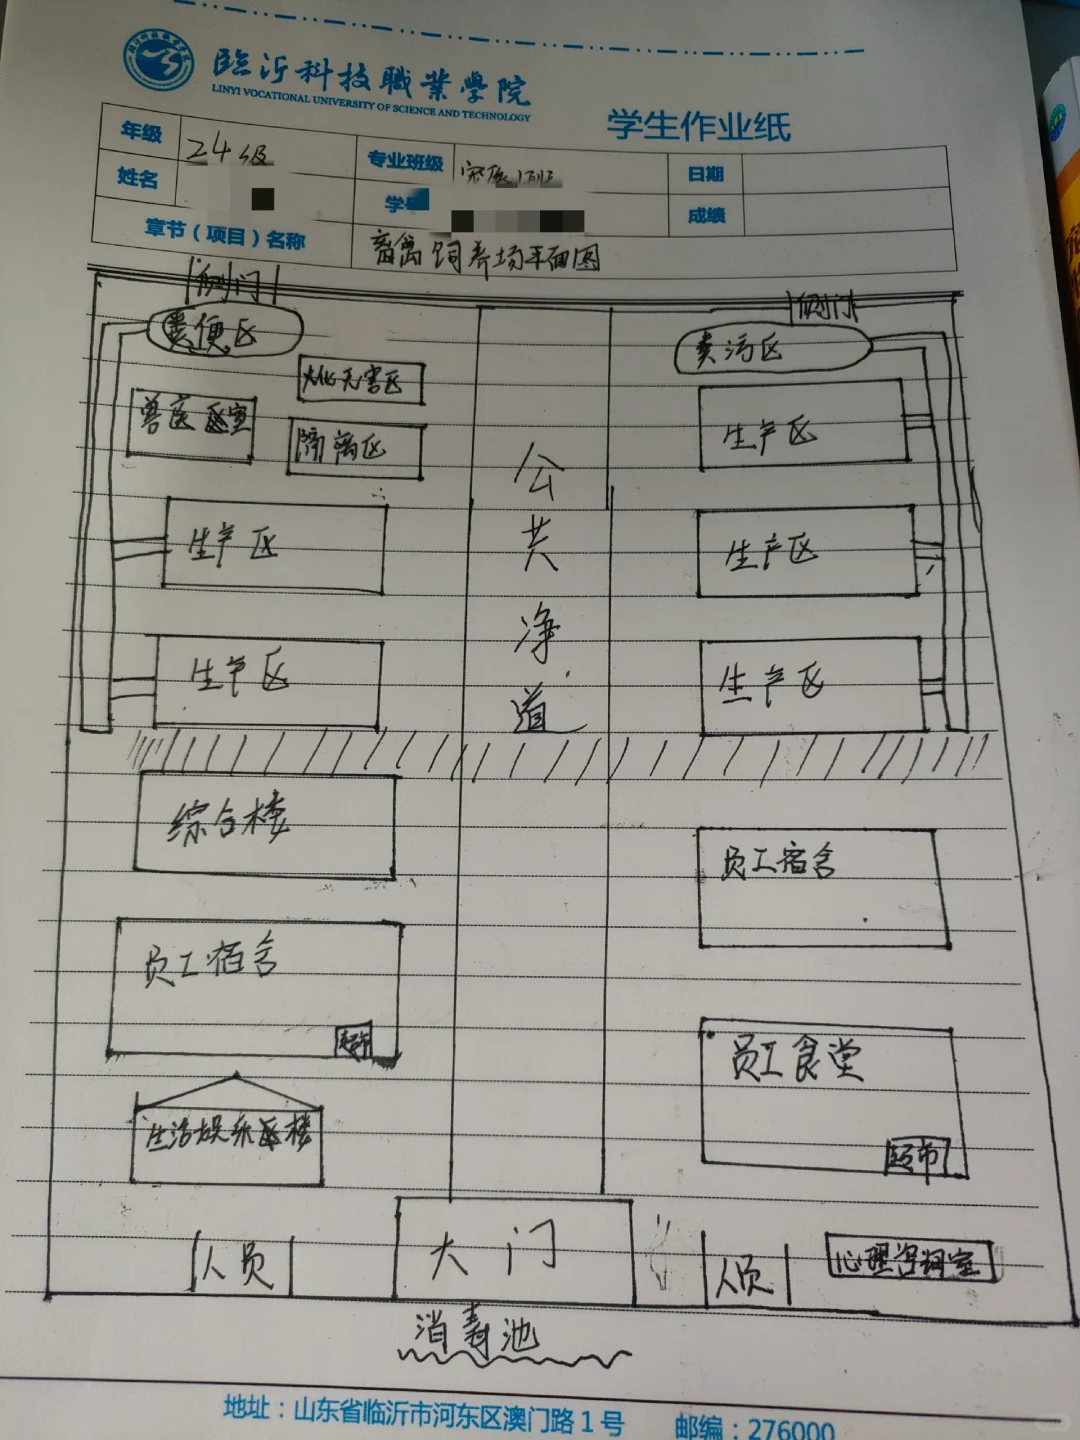 臨沂科技職業學院
LINYI VOCATIONAL UNIVERSITY OF SCIENCE AND TECHNOLOGY
学生作业纸
年级 24级 专业班级 日期
姓名 学号 成绩
章节（项目）名称 畜禽饲养场平面图
侧门 侧门
粪便区 粪污区
火化无害区
兽医 室 生产区
隔离区
公共净道
生产区 生产区
生产区 生产区
综合楼 员工宿舍
员工宿舍
超市 员工食堂
生活娱乐区楼 超市
人员 大门 人员 心理咨询室
消毒池
地址：山东省临沂市河东区澳门路1号 邮编：276000